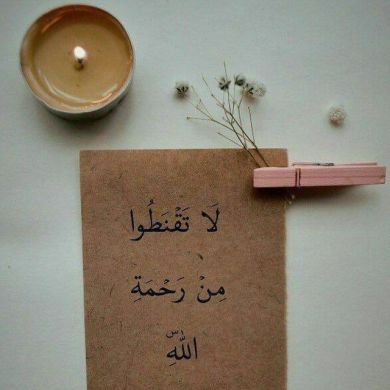 لَا تَقْنَطُوا
مِنْ رَحْمَةِ
اللَّهِ